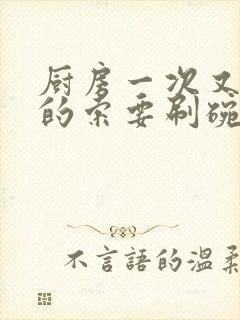 厨房一次又
的索要刷碗
不言語的溫柔